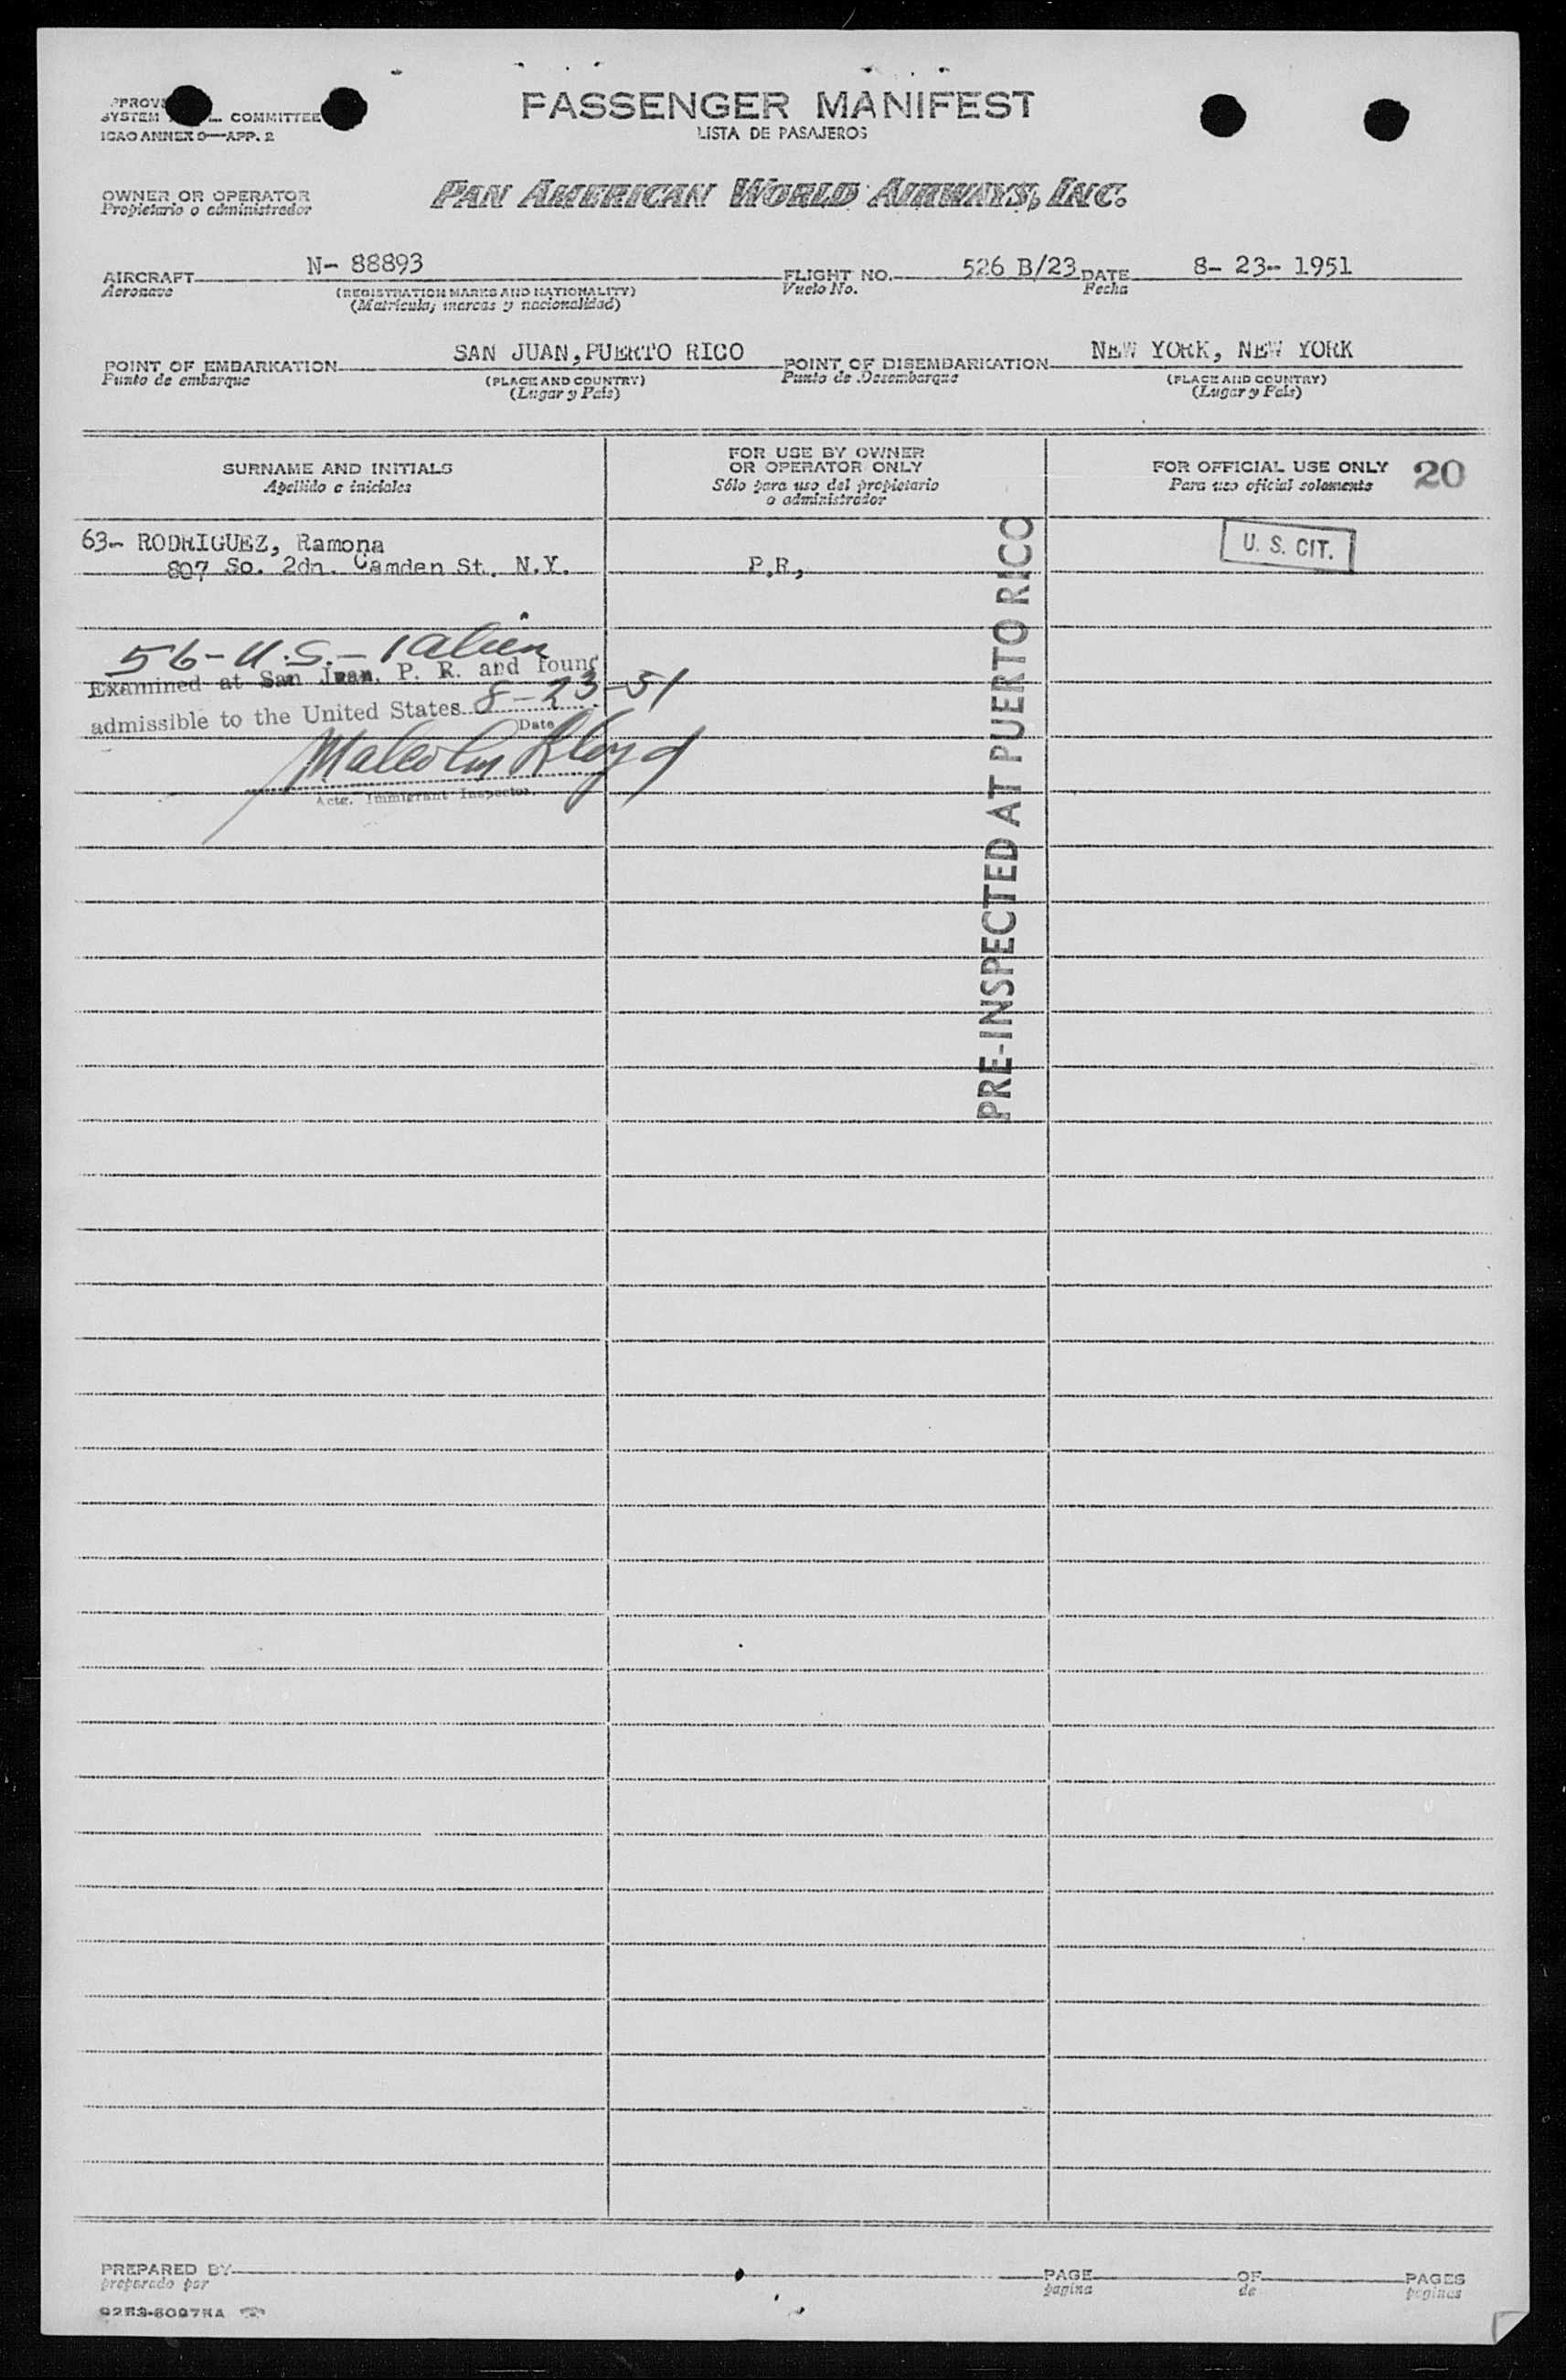 PASSENGER MANIFEST
LISTA DE PASAJEROS
SYSTEM COMMITTEE
ICAO ANNEX 9—APP. 2
OWNER OR OPERATOR
Propietario o administrador
PAN AMERICAN WORLD AIRWAYS, INC.
AIRCRAFT N- 88893 FLIGHT NO. 526 B/23 DATE 8- 23- 1951
Aeronave (REGISTRATION MARKS AND NATIONALITY) Vuelo No. Fecha
(Matricula, marcas y nacionalidad)
POINT OF EMBARKATION SAN JUAN, PUERTO RICO POINT OF DISEMBARKATION NEW YORK, NEW YORK
Punto de embarque (PLACE AND COUNTRY) Punto de Desembarque (PLACE AND COUNTRY)
(Lugar y Pais) (Lugar y Pais)
SURNAME AND INITIALS
Apellido e iniciales
FOR USE BY OWNER
OR OPERATOR ONLY
Sólo para uso del propietario
o administrador
FOR OFFICIAL USE ONLY 20
Para uso oficial solamente
63- RODRIGUEZ, Ramona
807 So. 2dn. Camden St. N.Y. P.R,
U. S. CIT.
56-U.S.- 1 alien
Examined at San Juan, P. R. and found
admissible to the United States 8-23-51
Date
Malcolm Lloyd
Actg. Immigrant Inspector.
PRE-INSPECTED AT PUERTO RICO
PREPARED BY PAGE OF PAGES
preparado por pagina de paginas